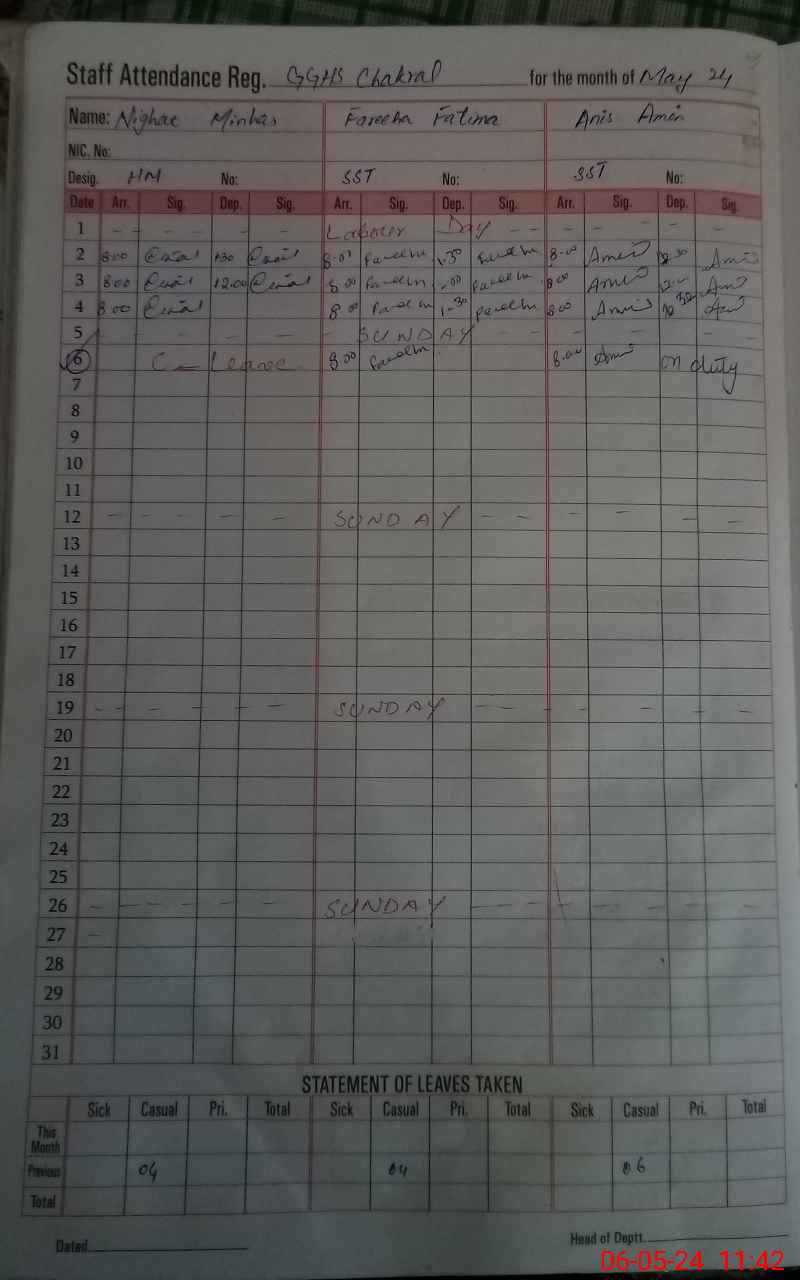 Staff Attendance Reg. GGHS Chakral for the month of May 24
Name: Nighat Minhas Fareeha Fatima Anis Amin
NIC. No:
Desig. HM No: SST No: SST No:
Date Arr. Sig. Dep. Sig. Arr. Sig. Dep. Sig. Arr. Sig. Dep. Sig.
1 – – – – Labour Day – – – – –
2 8.00 1.30 8.01 1.30 8.00 Amin 12.30 Amin
3 8.00 12.00 8.00 8.00 Amin Amin
4 8.00 8.00 1-30 8.00 Amin
5 – – – – SUNDAY – – – – – –
6 C–Leave 8.00 8.00 Amin on duty
7
8
9
10
11
12 – – – – – SUNDAY – – – – – –
13
14
15
16
17
18
19 – – – – – SUNDAY – – – – – – –
20
21
22
23
24
25
26 – – – – – SUNDAY – – – – – – –
27 –
28
29
30
31
STATEMENT OF LEAVES TAKEN
Sick Casual Pri. Total Sick Casual Pri. Total Sick Casual Pri. Total
This Month
Previous 04 04 06
Total
Dated Head of Deptt.
06-05-24 11:42